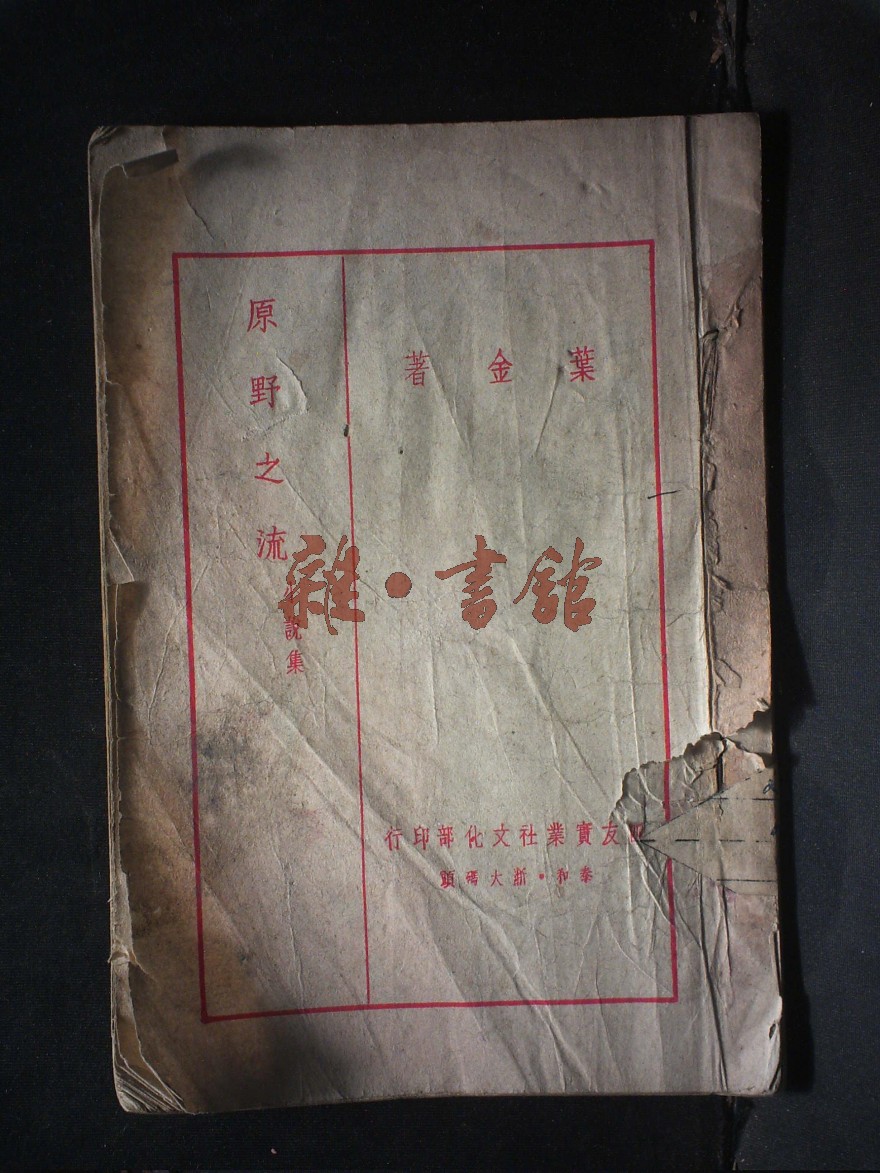 葉金著
原野之流
小說集
友實業社文化部印行
泰和·浙大碼頭
雜·書館